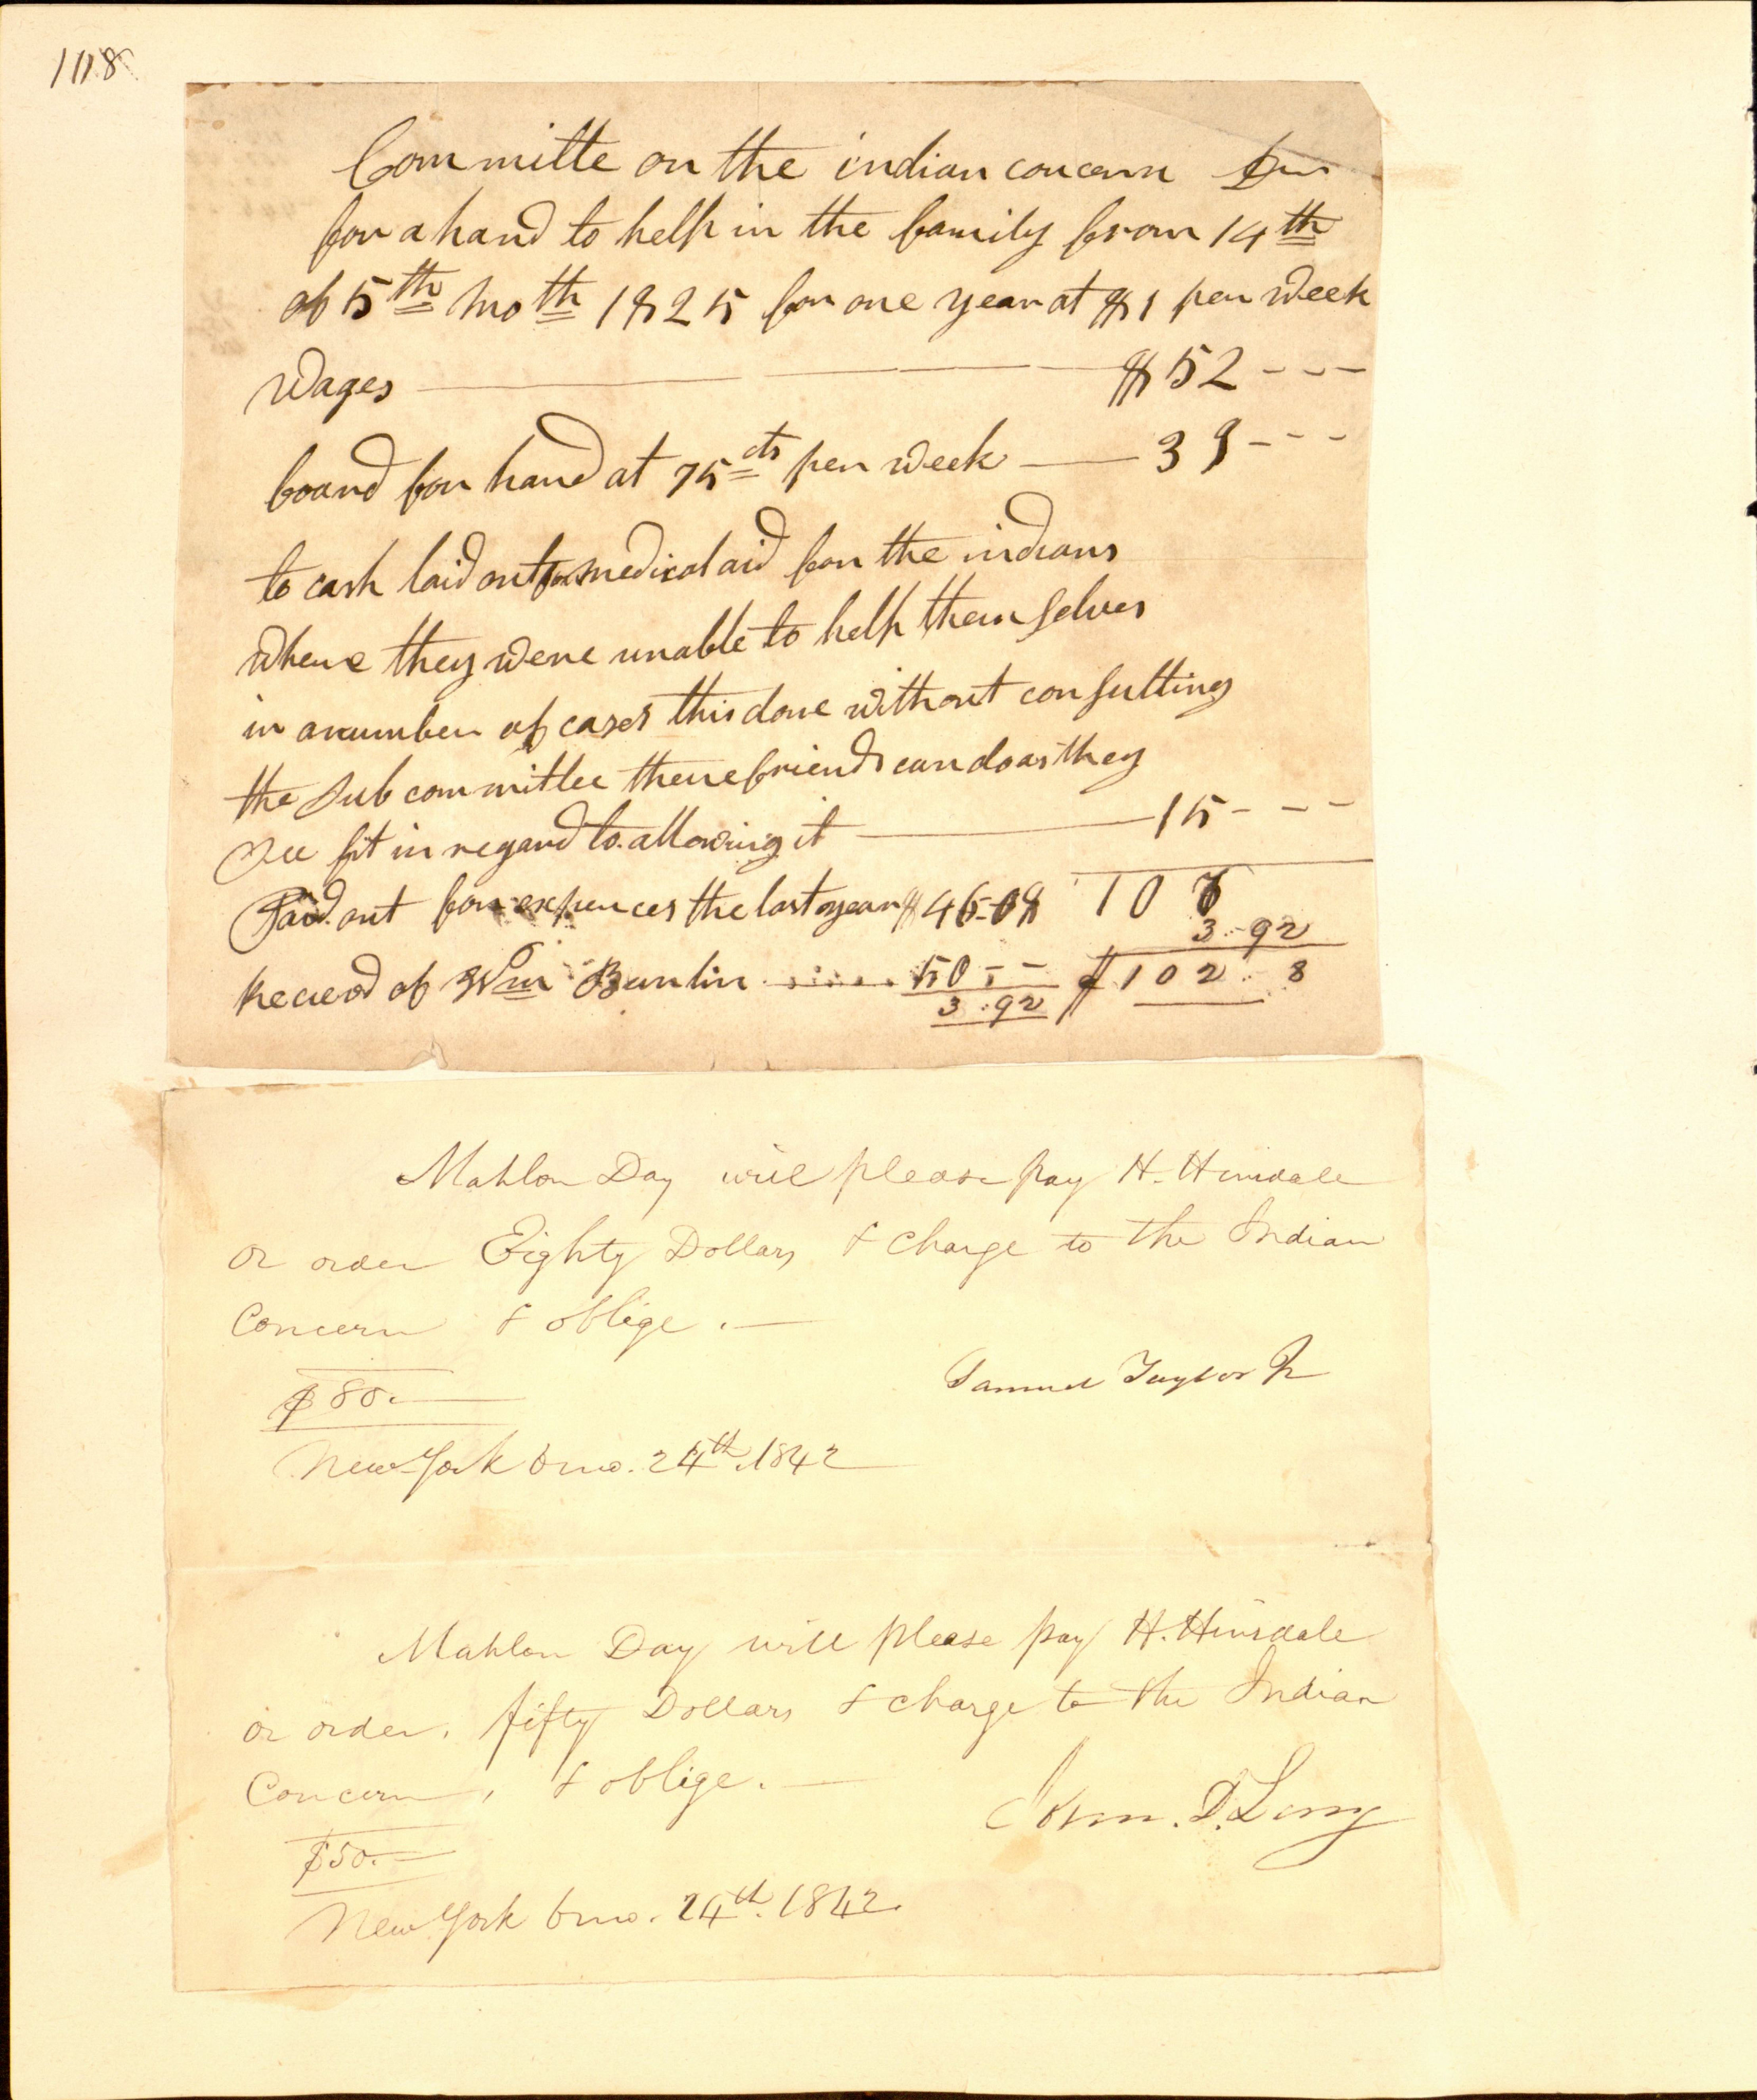 1118
Committe on the indian concern Dr
for a hand to help in the family from 14th
of 5th moth 1825 for one year at $1 per week
Wages $52 - - -
board for hand at 75cts per week 39 - - -
to cash laid out for medical aid for the indians
where they were unable to help themselves
in a number of cases this done without consulting
the sub committee there friends can do as they
see fit in regard to allowing it 15 - - -
Paid out for expences the last year $46-08 106
3..92
Receved of Wm Burlin ...... 50 - - $102..8
3..92
Mahlon Day will please pay H. Hinsdale
or order Eighty Dollars & charge to the Indian
Concern & oblige. —
$80.— Samuel Taylor Jr
New York 6 mo. 24th. 1842
Mahlon Day will please pay H. Hinsdale
or order, fifty Dollars & charge to the Indian
Concern, & oblige. —
$50.— John. D. Long
New York 6 mo. 24th. 1842.